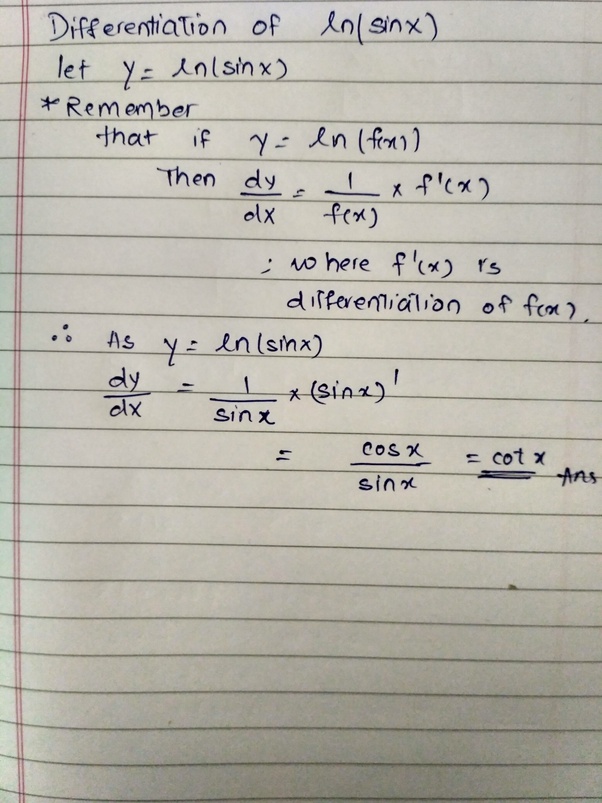 Differentiation of ln(sinx)
let y = ln(sinx)
* Remember
that if y = ln(f(x))
Then dy/dx = 1/f(x) × f'(x)
; where f'(x) is
differentiation of f(x).
∴ As y = ln(sinx)
dy/dx = 1/sinx × (sinx)'
= cosx/sinx = cotx Ans